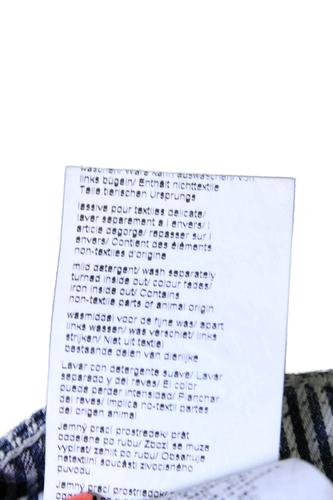 waschen/ Ware kann auswaschen/ von
links bügeln/ Enthält nichttextile
Teile tierischen Ursprungs
lessive pour textiles delicate/
laver separement a l envers/ l
article degorge/ repasser sur l
envers/ Contient des éléments
non-textiles d'origine
mild detergent/ wash separately
turned inside out/ colour fades/
iron inside out/ Contains
non-textile parts of animal origin
wasmiddel voor de fijne was/ apart
links wassen/ was verschiet/ links
strijken/ Niet uit textiel
bestaande delen van dierlijke
Lavar con detergente suave/ Lavar
separado y del reves/ El color
puede perder intensidad/ Planchar
del reves/ Implica no-textil partes
del origen animal
Jemný prací prostredek/ prát
oddelene po rubu/ Zbozi se muze
vypirat/ zehlit po rubu/ Obsahuje
netextilní součásti živočisného
puvodu
Jemný prací prostriedok/
oddelene po